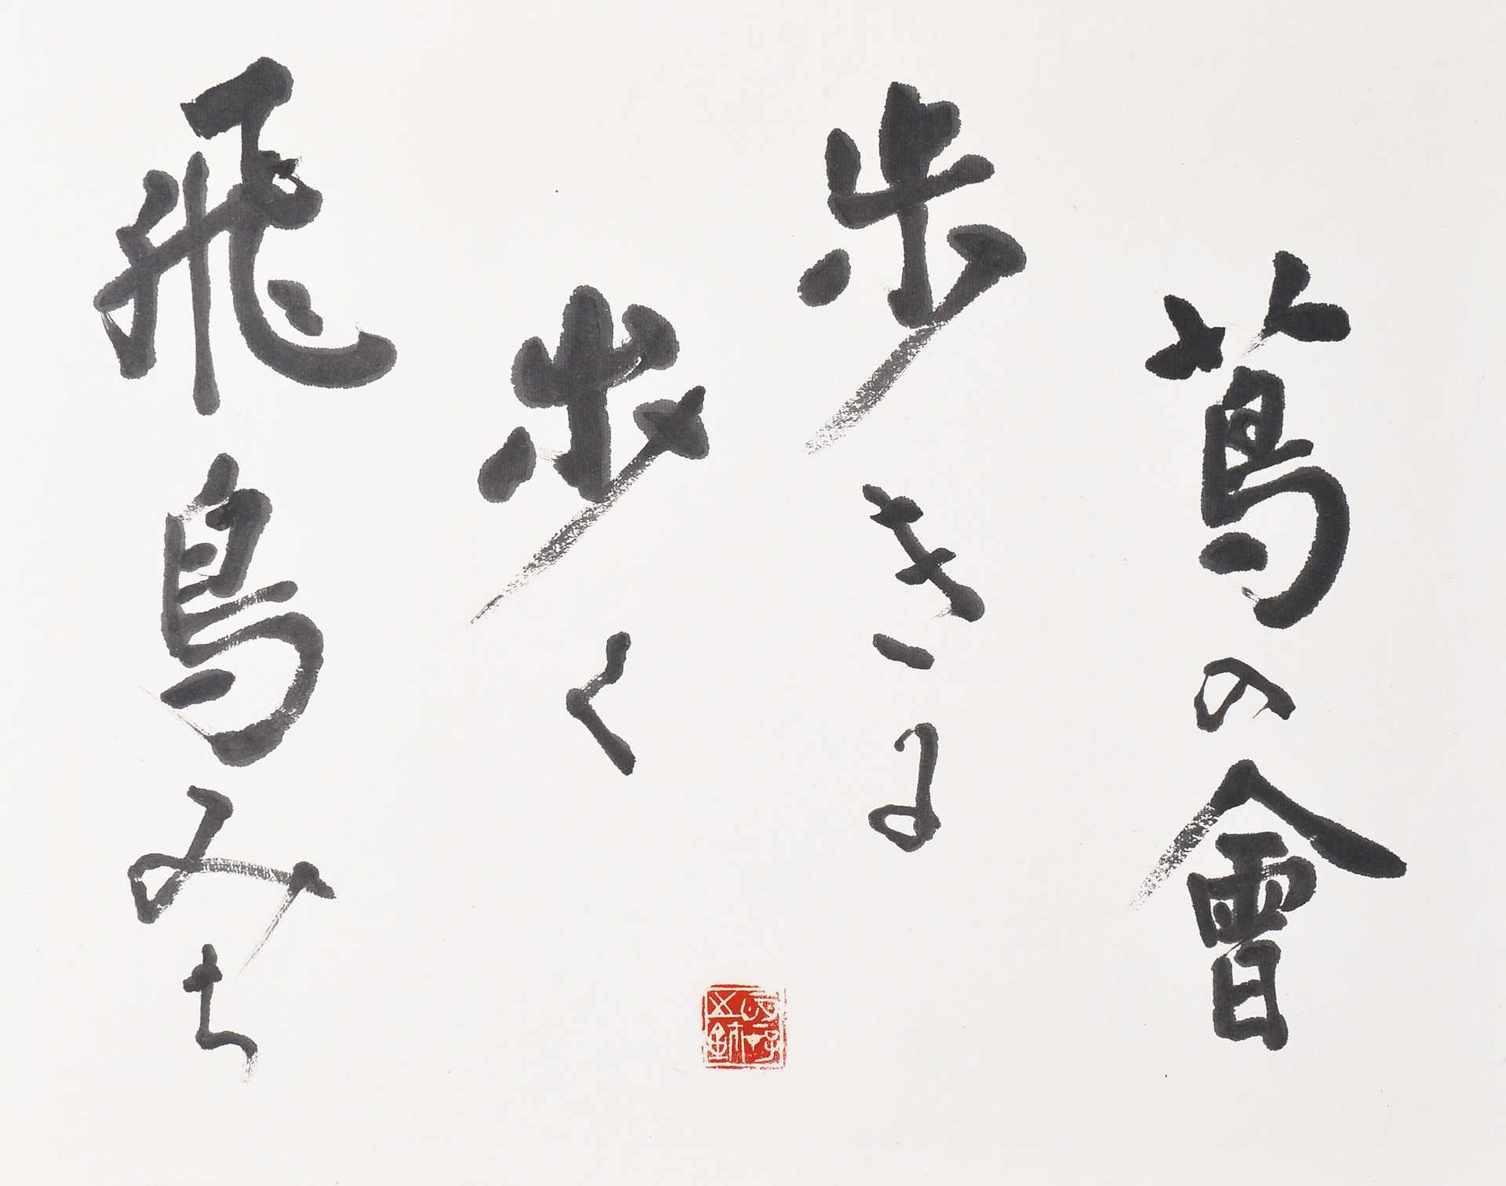 蔦の會
歩きる
歩く
飛鳥みち